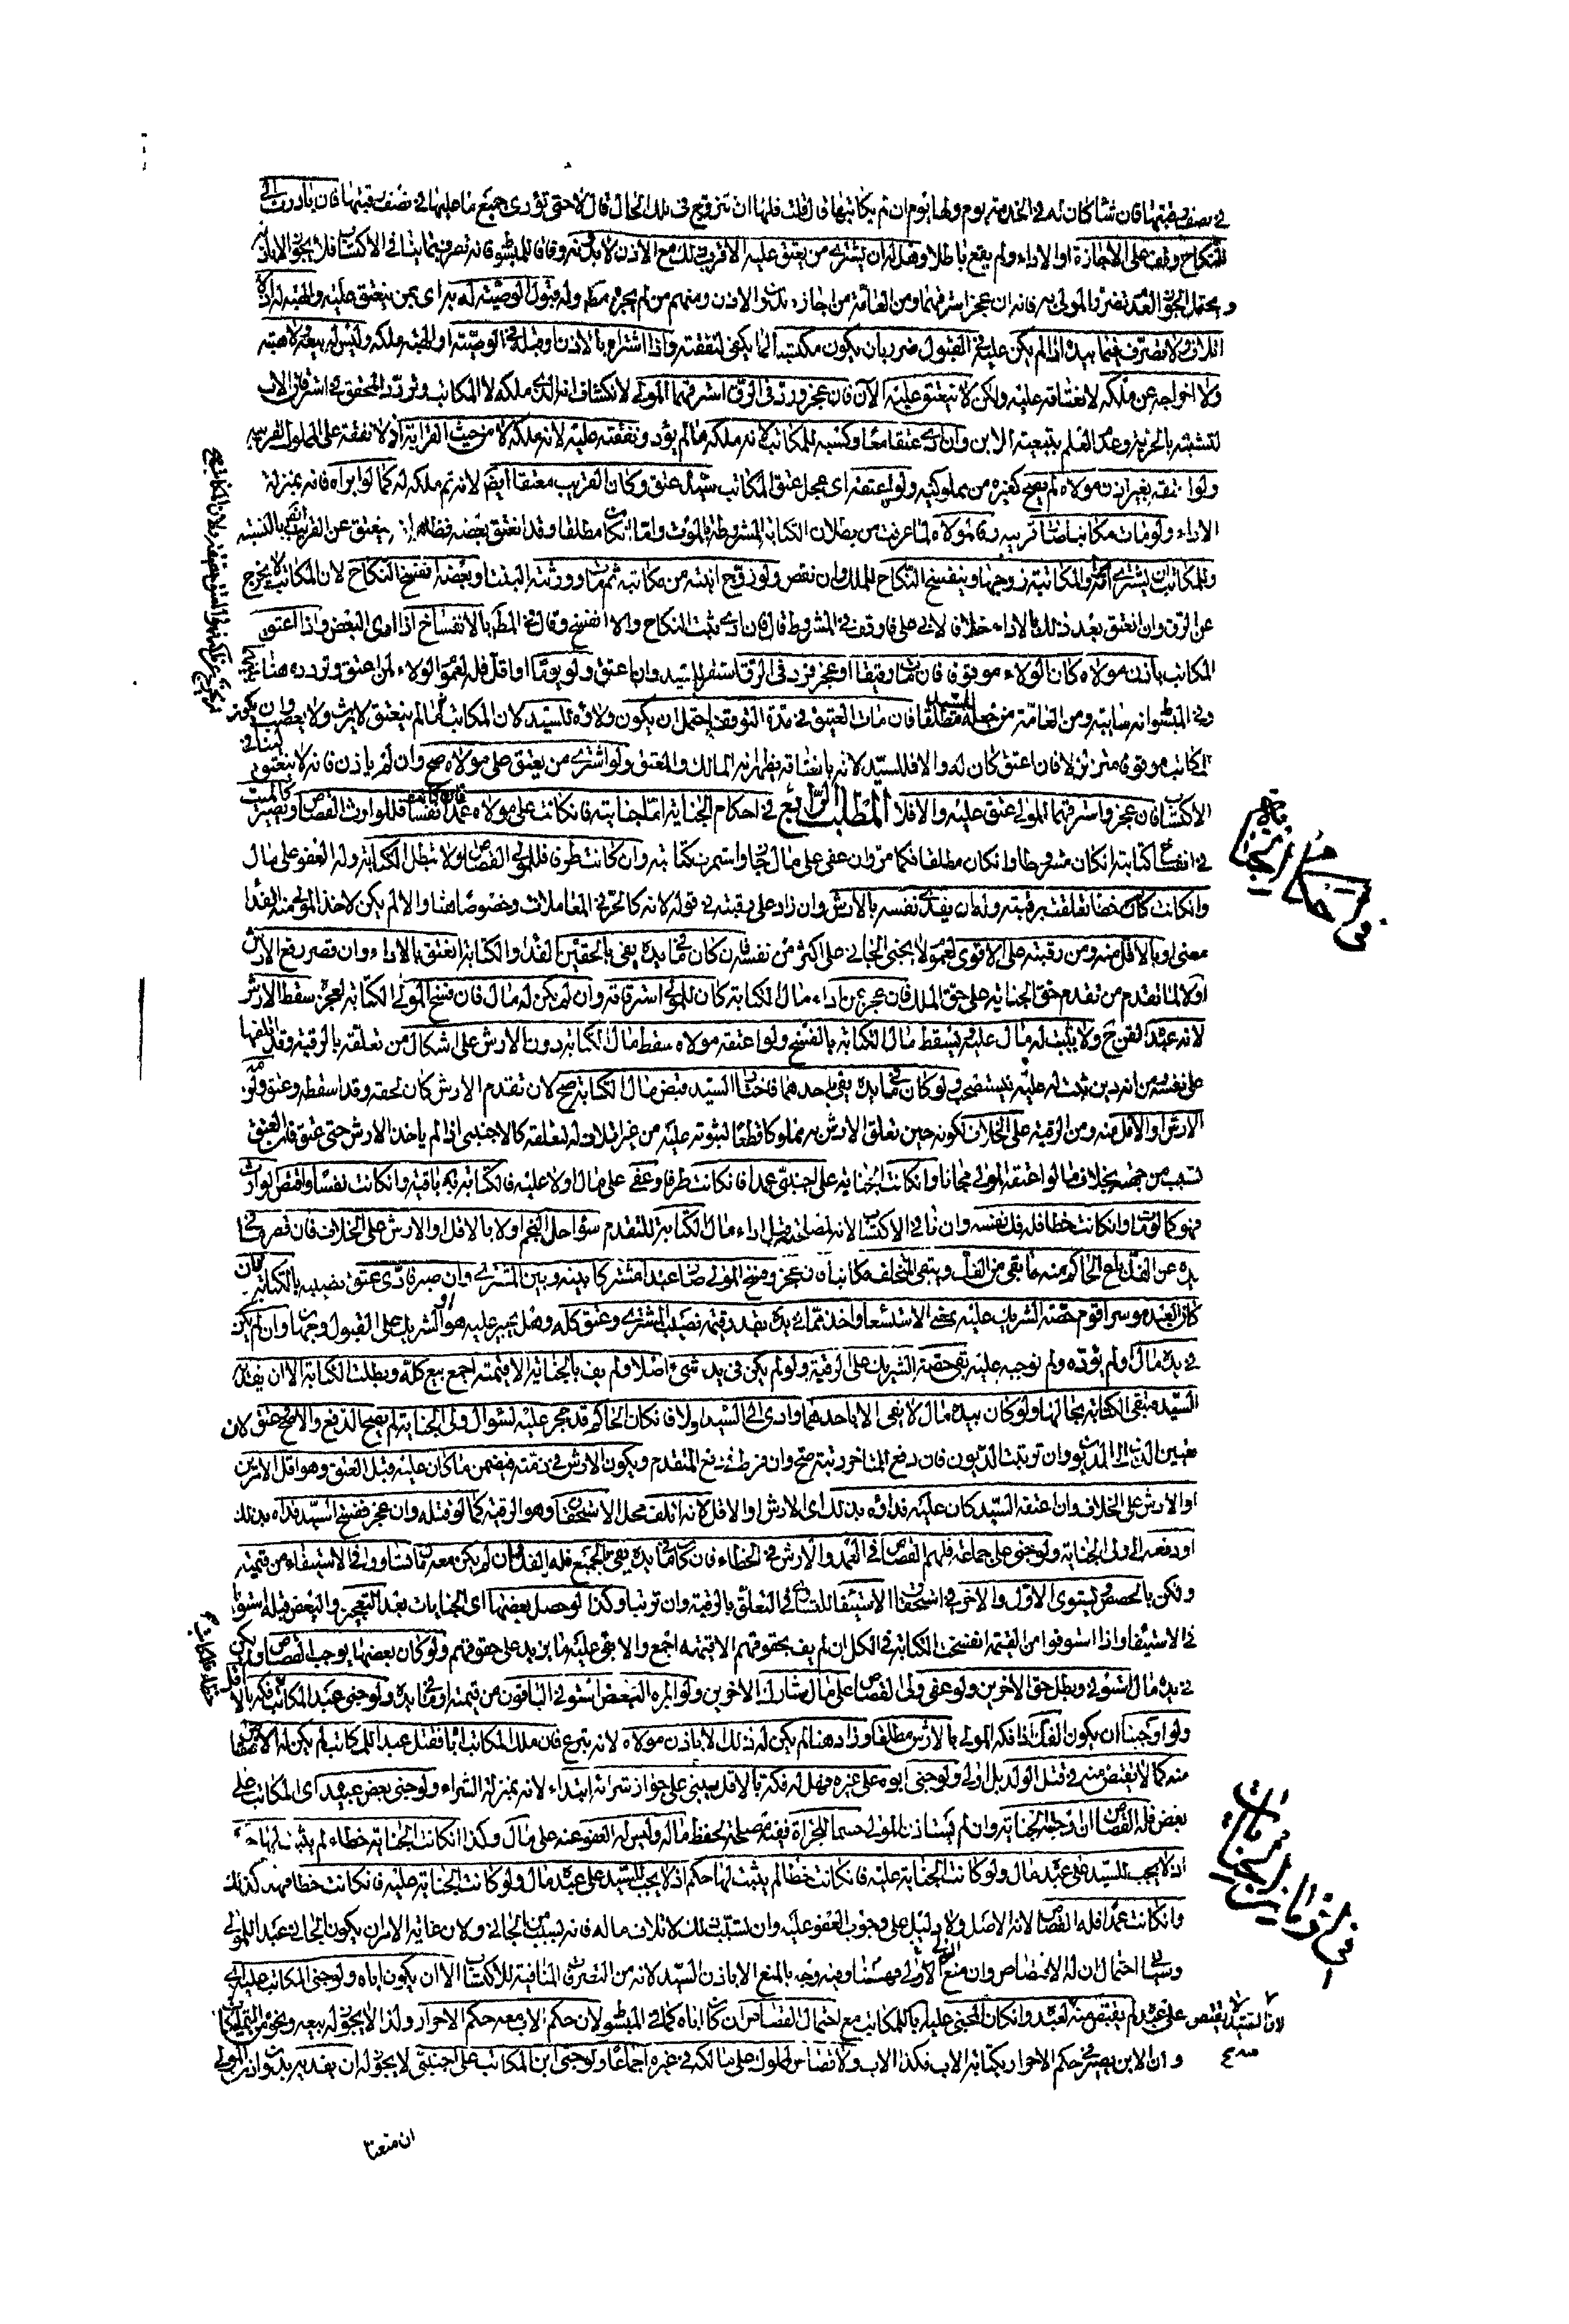 في نصف قيمتها فان شاء كان له في الخدمة يوم ولها يوم ان لم يكاتبها قال قلت فلها ان تتزوج في تلك الحال قال لا حتى تؤدي جميع ما عليها في نصف رقبتها فان بادرت الى
النكاح وقف على الاجازة او الاداء ولم يقع باطلا وهل له ان يشتري من يعتق عليه الاقرب ذلك مع الاذن لا بدونه وفاقا للمبسوط فانه تصرف بما ينافي الاكتساب فلا يجوز الا باذنه
ويحتمل الجواز لعدم تضرر المولى به فانه ان عجز استرقهما ومن العامة من اجازه بدون الاذن ومنهم من لم يجزه مطلقا وله قبول الوصية له به اي بمن ينعتق عليه والهبة له اذ لا
اتلاف ولا تصرف فيما بيده اذا لم يكن عليه في القبول ضرر بان يكون مكتسبا لما يكفي لنفقته واذا اشتراه بالاذن او قبله في الوصية او الهبة ملكه وليس له بيعه ولا هبته
ولا اخراجه عن ملكه لانعتاقه عليه ولكن لا ينعتق عليه الآن فان عجز ورد في الرق استرقهما المولى لانكشاف انه الذي ملكه لا المكاتب وتردد المحقق في استرقاق الاب
لتشبثه بالحرية وعدم العلم بتبعيته الابن وان ادى عتقا معا وكسبه للمكاتب لانه ملكه ما لم يؤد ونفقته عليه لانه ملكه لا من حيث القرابة اذ لا نفقة على المملوك لقريبه
ولو اعتقه بغير اذن مولاه لم يصح كغيره من مملوكيه ولو اعتقه اي عجل عتق المكاتب سيده عتق وكان القريب معتقا ايضا لانه تم ملكه له كما لو ابراه فانه بمنزلة
الاداء ولو مات مكاتبا صار قريبه رقا لمولاه لما عرفت من بطلان الكتابة المشروطة بالموت واما ان كان مطلقا وقد انعتق بعضه فظاهر انه ينعتق عن القريب ايضا بالنسبة
وللمكاتب ان يشتري امرأته والمكاتبة زوجها وينفسخ النكاح للملك وان نقص ولو زوج ابنته من مكاتبه ثم مات وورثته البنت او بعضه انفسخ النكاح لان المكاتب لا يخرج
عن الرق وان انعتق بعد ذلك بالاداء خلافا لابي علي فاوقف في المشروط قال فان ادى ثبت النكاح والا انفسخ وقال في المطلق بالانفساخ اذا ادى البعض واذا اعتق
المكاتب باذن مولاه كان الولاء موقوفا فان مات رقيقا او عجز فرد في الرق استقر للسيد وان اعتق ولو يوما او اقل فله لعموم الولاء لمن اعتق وتردده هنا
وفي المبسوط انه سايبة ومن العامة من جعله للسيد مطلقا فان مات العتيق في مدة التوقف احتمل ان يكون ولاؤه للسيد لان المكاتب ما لم ينعتق لا يرث ولا يعصب وان يكون
المكاتب موقوفا ميراثه فان اعتق كان له والا فللسيد لانه بانعتاقه يظهر انه المالك والمعتق ولو اشترى من يعتق على مولاه صح وان لم ياذن فانه لا ينعتق
الاكتساب فان عجز واسترقهما المولى عتق عليه والا فلا المطلب الرابع في احكام الجناية اما جنايته فان كانت على مولاه عمدا فان كانت نفسا فللوارث القصاص ويصير كالميت
في انفساخ كتابته ان كان مشروطا وان كان مطلقا فكما مر وان عفى على مال جاز واستمرت كتابته وان كانت طرفا فللمولى القصاص ولا تبطل الكتابة وله العفو على مال
وان كانت خطأ تعلقت برقبته وله ان يفدي نفسه بالارش وان زاد على رقبته في قوله لانه كالحر في المعاملات وخصوصا هنا والا لم يكن لاخذ المولى منه الفداء
معنى او بالاقل منه ومن رقبته على الاقوى لعموم لا يجني الجاني على اكثر من نفسه فان كان ما في يده يفي بالحقين الفداء والكتابة انعتق بالاداء وان قصر دفع الارش
اولا لما تقدم من تقدم حق الجناية على حق الملك فان عجز عن اداء مال الكتابة كان للمولى استرقاقه وان لم يكن له مال فان فسخ المولى الكتابة لعجزه سقط الارش
لانه عبد القن ح ولا يثبت له مال عليه ويسقط مال الكتابة بالفسخ ولو اعتقه مولاه سقط مال الكتابة دون الارش على اشكال من تعلقه بالرقبة وقد اتلفها
على نفسه ومن انه دين ثبت له عليه فيستصحب ولو كان ما في يده يفي باحدهما فاختار السيد قبض مال الكتابة صح لان تقدم الارش كان لحقه وقد اسقطه وعتق ولزمه
الارش او الاقل منه ومن الرقبة على الخلاف لكونه حين تعلق الارش به مملوكا قطعا لثبوته عليه من غير اتلاف له لتعلقه كالاجنبي اذا لم ياخذ الارش حتى عتق فان العتق
تسبب من جهته بخلاف ما لو اعتقه المولى مجانا وان كانت الجناية على اجنبي عمدا فان كانت طرفا وعفى على مال او لا عليه فالكتابة بحالها باقية وان كانت نفسا واقتص الوارث
فهو كما لو مات وان كانت خطا فله فك نفسه وان نافى الاكتساب لانه لمصلحته قبل اداء مال الكتابة للتقدم سواء حل النجم او لا بالاقل او الارش على الخلاف فان قصر ما في
يده عن الفك باع الحاكم منه ما بقي من الفك ويبقى المتخلف مكاتبا فان عجز وفسخ المولى صار عبدا مشتركا بينه وبين المشتري وان صبر فادى عتق نصيبه بالكتابة فان
كان العبد موسرا قوم حصة الشريك عليه بمعنى الاستسعاء واخذ مما في يده بقدر قيمة نصيب المشتري وعتق كله وهل يجبر عليه هو او الشريك على القبول وجهان وان لم يكن
في يده مال ولم يؤده ولم نوجبه عليه بقي حصة الشريك على الرقية ولو لم يكن في يده شيء اصلا ولم يف بالجناية الا قيمته اجمع بيع كله وبطلت الكتابة الا ان يفديه
السيد فتبقى الكتابة بحالها ولو كان بيده مال لا يفي الا باحدهما وادى الى السيد اولا فان كان الحاكم قد حجر عليه لسؤال ولي الجناية لم يصح الدفع والا صح وعتق لان
تعيين الدين الى المديون وان ترتبت الديون فان دفع المتاخر رتبة صح وان فرط في دفع المتقدم ويكون الارش في ذمته فيضمن ما كان عليه قبل العتق وهو اقل الامرين
او الارش على الخلاف وان اعتقه السيد كان عليه فداؤه بذلك اي الارش او الاقل لانه اتلف محل الاستحقاق وهو الرقبة كما لو قتله وان عجز ففسخ السيد فداه بذلك
او دفعه الى ولي الجناية ولو جنى على جماعة فلهم القصاص في العمد والارش في الخطاء فان كان ما في يده يفي بالجميع فله الفداء وان لم يكن معه مال تساووا في الاستيفاء من قيمته
ولكن بالحصص يستوي الاول والاخر في استحقاق الاستيفاء للتساوي في التعلق بالرقبة وان ترتبا وكذا لو حصل بعضها اي الجنايات بعد التعجيز والبعض قبله استووا
في الاستيفاء واذا استوفوا من القيمة انفسخت الكتابة في الكل ان لم يف بحقوقهم الا قيمته اجمع والا بقي عليه ما يزيد على حقوقهم ولو كان بعضها يوجب القصاص ولم يكن
في يده مال استوفي وبطل حق الاخرين ولو عفى ولي القصاص على مال شارك الاخرين ولو ابراه البعض استوفى الباقون من قيمته او مما في يده ولو جنى عبد المكاتب فكه بالاقل
ولو اوجبنا ان يكون الفك اذا فكه المولى بالارش مطلقا وزاد هنا لم يكن له ذلك الا باذن مولاه لانه تبرع فان ملك المكاتب اباه فقتل عبدا للمكاتب لم يكن له الاقتصاص
منه كما لا يقتص منه في قتل الولد بل اولى ولو جنى ابوه على غيره فهل له فكه بالاقل يبنى على جواز شرائه ابتداء لانه بمنزلة الشراء ولو جنى بعض عبيده اي المكاتب على
بعض فله القصاص ان اوجبته الجناية وان لم يستاذن المولى حسما للجراة ففيه مصلحة لحفظ ماله وليس له العفو عنه على مال وكذا ان كانت الجناية خطاء لم يثبت لها
اذ لا يجب للسيد على عبده مال ولو كانت الجناية عليه فان كانت خطا لم يثبت لها حكم اذ لا يجب للسيد على عبده مال ولو كانت الجناية عليه فان كانت خطا فهدر كذلك
وان كانت عمدا فله القصاص لانه الاصل ولا دليل على وجوب العفو عليه وان تسبب ذلك لاتلاف ماله فانه بسبب من الجاني ولان غاية الامر ان يكون الجاني عبد المولى
وسياتي احتمال ان له الاقتصاص وان منع المولى الاولى فهنا وفيه وجه بالمنع الا باذن السيد لانه من التصرفات المنافية للاكتساب الا ان يكون اباه ولو جنى المكاتب عليه اي
على عبده لم يقتص منه لعبده وان كان المجني عليه ابا للمكاتب مع احتمال القصاص ان كان اباه كما في المبسوط لان حكم الاب معه حكم الاحرار ولذا لا يجوز له بيعه ونحوه
وان الابن يصير في حكم الاحرار بكتابة الاب فكذا الاب ولا قصاص لمملوك على مالكه في غيره اجماعا ولو جنى ابن المكاتب على اجنبي لا يجوز له ان يفديه بدون اذن المولى
ان منعنا
في احكام الجناية
في اشتراط الجنايات